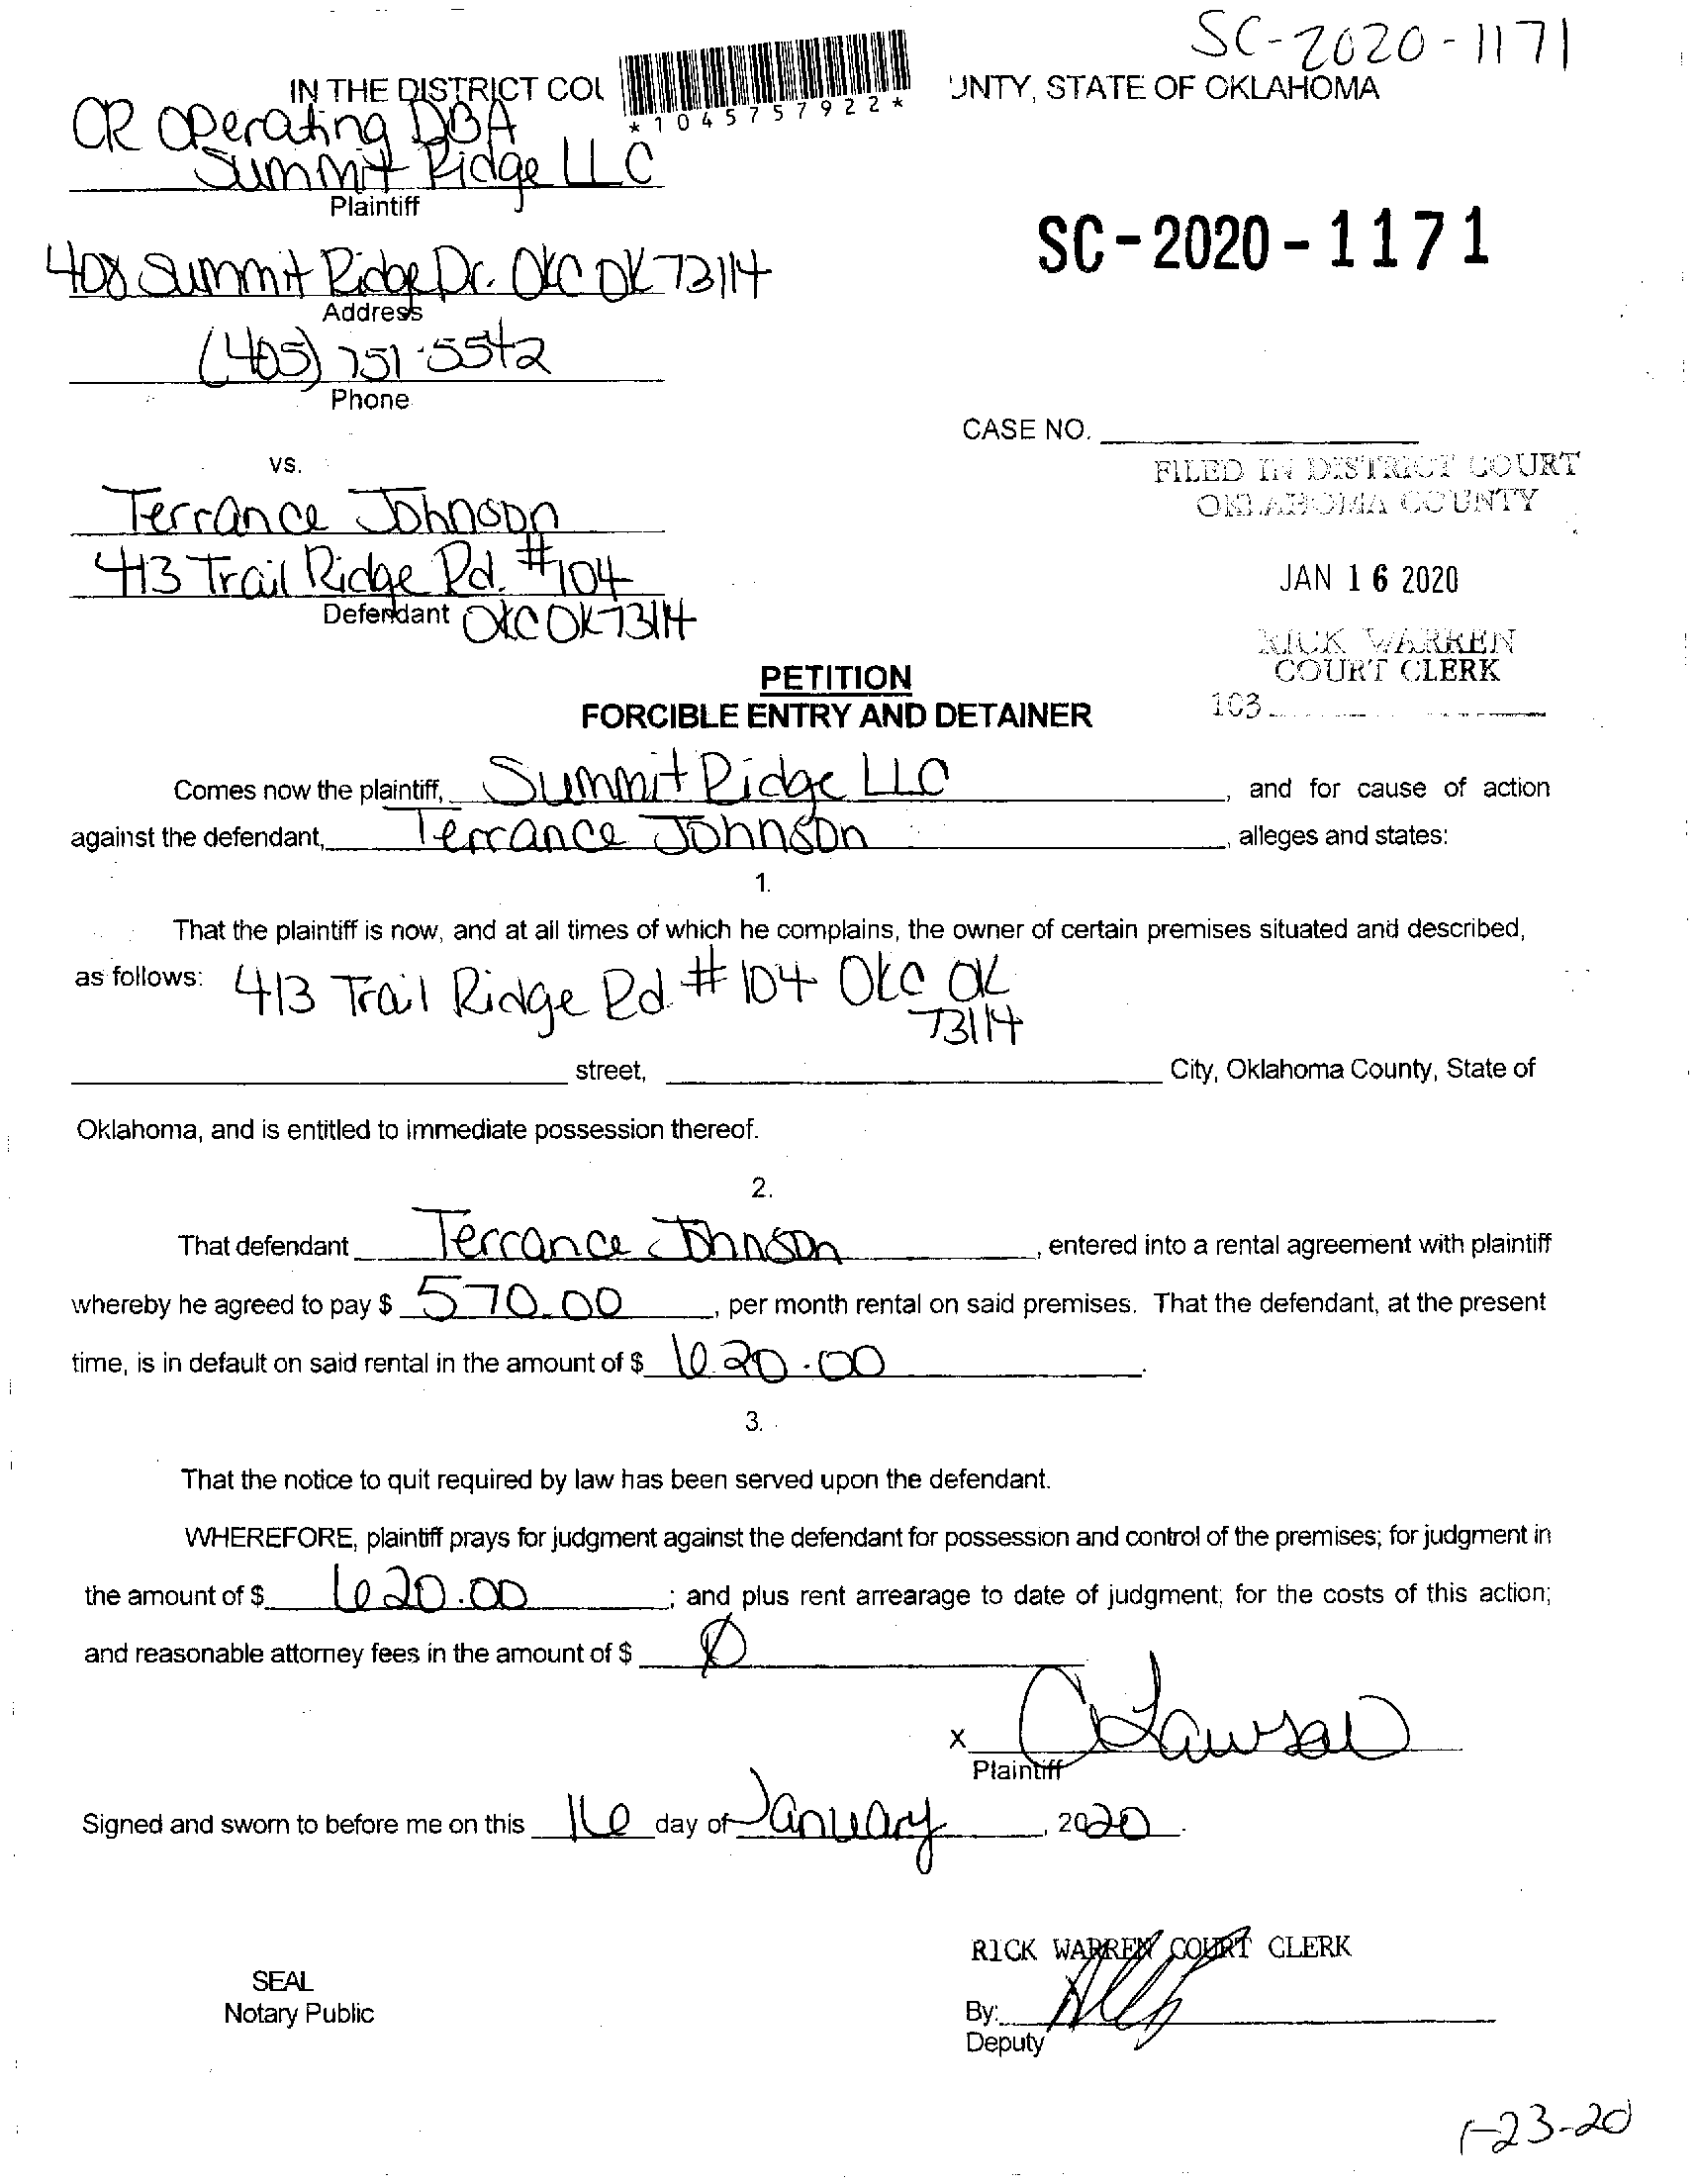 SC-2020-1171
IN THE DISTRICT COU
UNTY, STATE OF OKLAHOMA
*1045757922*
CR Operating DBA
Summit Ridge LLC
Plaintiff
SC-2020-1171
408 Summit Ridge Dr. OKC OK 73114
Address
(405) 751-5542
Phone
CASE NO.
vs.
FILED IN DISTRICT COURT
OKLAHOMA COUNTY
Terrance Johnson
413 Trail Ridge Rd. #104
JAN 16 2020
Defendant OKC OK 73114
RICK WARREN
COURT CLERK
PETITION
103
FORCIBLE ENTRY AND DETAINER
Comes now the plaintiff, Summit Ridge LLC, and for cause of action
against the defendant, Terrance Johnson, alleges and states:
1.
That the plaintiff is now, and at all times of which he complains, the owner of certain premises situated and described,
as follows: 413 Trail Ridge Rd. #104 OKC OK
73114
street, City, Oklahoma County, State of
Oklahoma, and is entitled to immediate possession thereof.
2.
That defendant Terrance Johnson, entered into a rental agreement with plaintiff
whereby he agreed to pay $ 570.00, per month rental on said premises. That the defendant, at the present
time, is in default on said rental in the amount of $ 620.00.
3.
That the notice to quit required by law has been served upon the defendant.
WHEREFORE, plaintiff prays for judgment against the defendant for possession and control of the premises; for judgment in
the amount of $ 620.00; and plus rent arrearage to date of judgment; for the costs of this action;
and reasonable attorney fees in the amount of $ Ø
x CLawson
Plaintiff
Signed and sworn to before me on this 16 day of January, 2020.
RICK WARREN COURT CLERK
SEAL
Notary Public
By:
Deputy
1-23-20